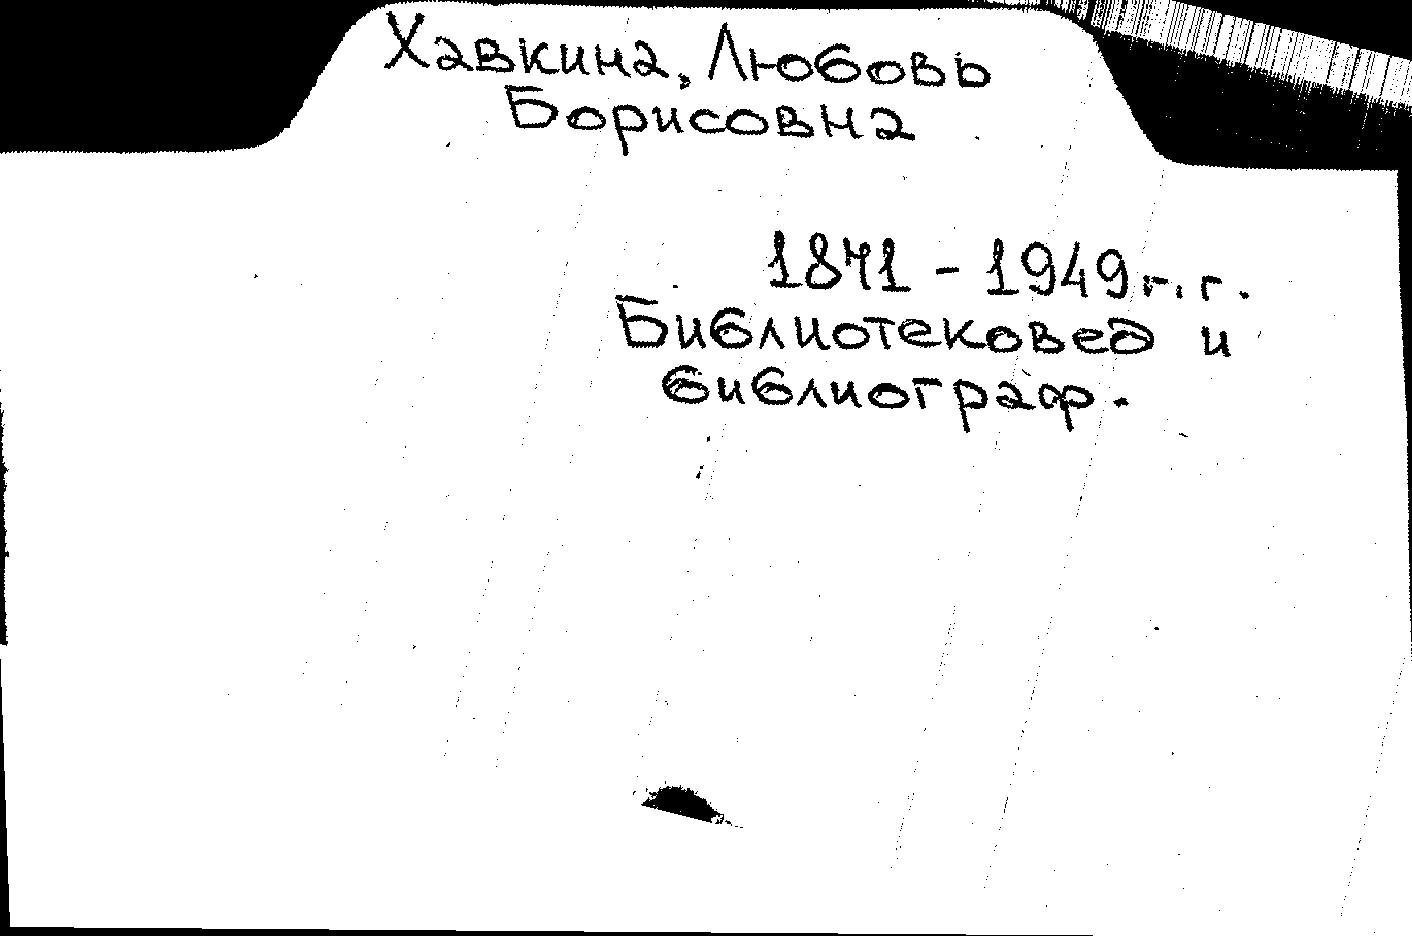 Хавкина, Любовь
Борисовна
1871 - 1949 г.г.
Библиотековед и
библиограф.